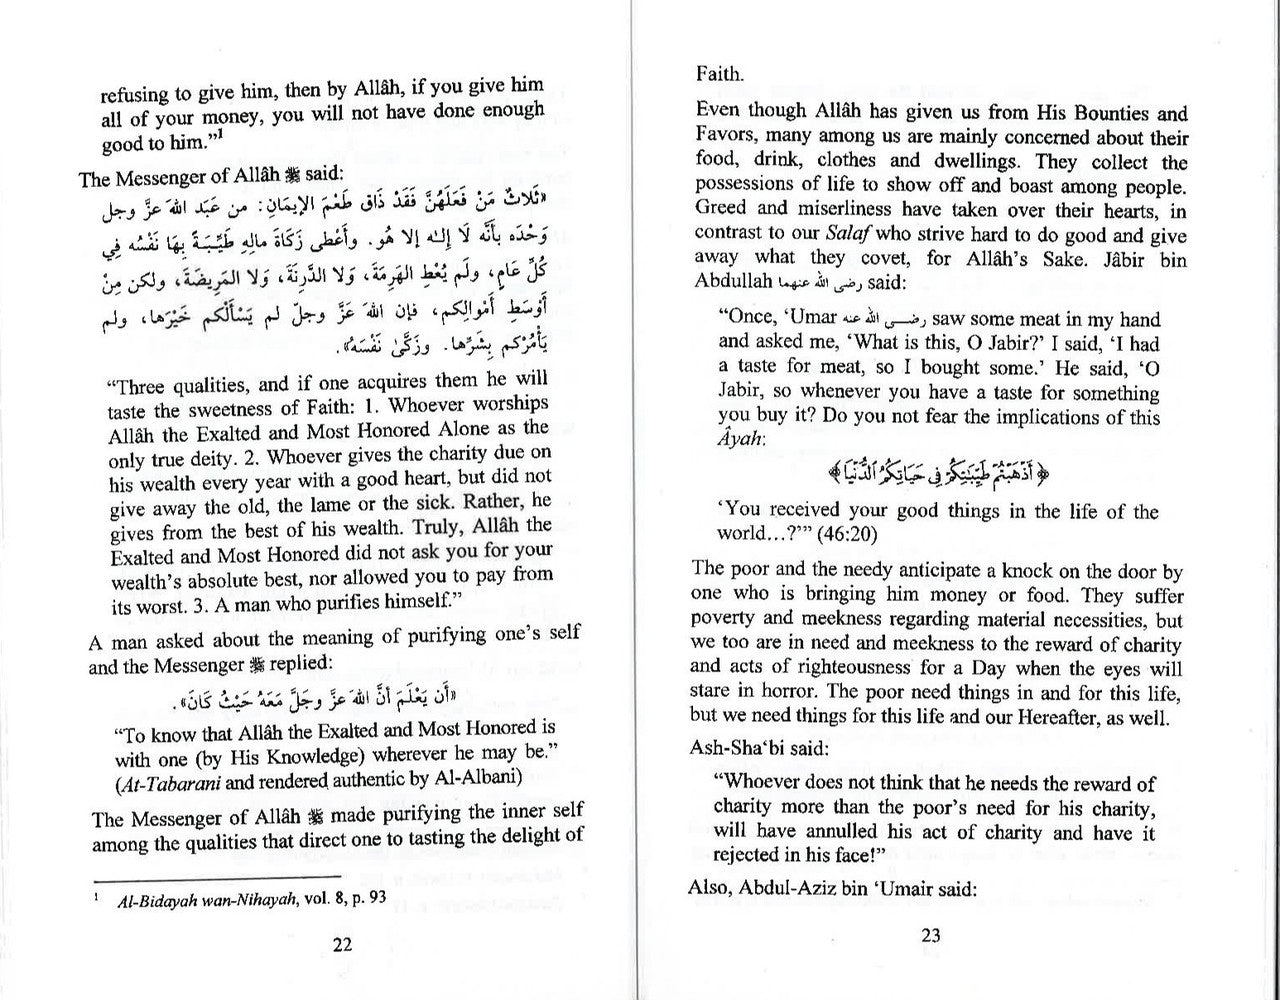 refusing to give him, then by Allâh, if you give him
all of your money, you will not have done enough
good to him.”¹
The Messenger of Allâh ﷺ said:
«ثَلاثٌ مَنْ فَعَلَهُنَّ فَقَدْ ذَاقَ طَعْمَ الإيمَانِ: من عَبَد اللهَ عزَّ وجل
وَحْدَه بأنَّه لَا إلـٰه إلا هُو. وأَعْطى زَكَاةَ مالِهِ طَيِّبَةً بِهَا نَفْسُه فِي
كُلِّ عَامٍ، ولَم يُعْطِ الهَرِمَةَ، وَلا الدَّرِنَةَ، وَلا المَرِيضَةَ، ولكن مِنْ
أَوسَطِ أَمْوالِكم، فإن اللهَ عَزَّ وجلّ لم يَسْأَلْكم خَيْرَها، ولم
يَأْمُرْكم بِشَرِّها. وزَكَّىٰ نَفْسَهُ».
“Three qualities, and if one acquires them he will
taste the sweetness of Faith: 1. Whoever worships
Allâh the Exalted and Most Honored Alone as the
only true deity. 2. Whoever gives the charity due on
his wealth every year with a good heart, but did not
give away the old, the lame or the sick. Rather, he
gives from the best of his wealth. Truly, Allâh the
Exalted and Most Honored did not ask you for your
wealth’s absolute best, nor allowed you to pay from
its worst. 3. A man who purifies himself.”
A man asked about the meaning of purifying one’s self
and the Messenger ﷺ replied:
«أَن يَعْلَمَ أنَّ اللهَ عزَّ وجَلَّ مَعَهُ حَيْثُ كَانَ».
“To know that Allâh the Exalted and Most Honored is
with one (by His Knowledge) wherever he may be.”
(At-Tabarani and rendered authentic by Al-Albani)
The Messenger of Allâh ﷺ made purifying the inner self
among the qualities that direct one to tasting the delight of
¹ Al-Bidayah wan-Nihayah, vol. 8, p. 93
22
Faith.
Even though Allâh has given us from His Bounties and
Favors, many among us are mainly concerned about their
food, drink, clothes and dwellings. They collect the
possessions of life to show off and boast among people.
Greed and miserliness have taken over their hearts, in
contrast to our Salaf who strive hard to do good and give
away what they covet, for Allâh’s Sake. Jâbir bin
Abdullah رضى الله عنهما said:
“Once, ‘Umar رضى الله عنه saw some meat in my hand
and asked me, ‘What is this, O Jabir?’ I said, ‘I had
a taste for meat, so I bought some.’ He said, ‘O
Jabir, so whenever you have a taste for something
you buy it? Do you not fear the implications of this
Âyah:
﴿أَذْهَبْتُمْ طَيِّبَـٰتِكُمْ فِى حَيَاتِكُمُ ٱلدُّنْيَا﴾
‘You received your good things in the life of the
world...?’” (46:20)
The poor and the needy anticipate a knock on the door by
one who is bringing him money or food. They suffer
poverty and meekness regarding material necessities, but
we too are in need and meekness to the reward of charity
and acts of righteousness for a Day when the eyes will
stare in horror. The poor need things in and for this life,
but we need things for this life and our Hereafter, as well.
Ash-Sha‘bi said:
“Whoever does not think that he needs the reward of
charity more than the poor’s need for his charity,
will have annulled his act of charity and have it
rejected in his face!”
Also, Abdul-Aziz bin ‘Umair said:
23